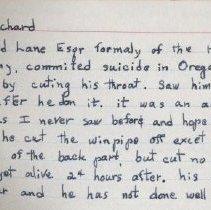 chard
d Lane Esqr formaly of the H
ny, commited suicide in Orego
by cuting his throat. Saw him
after he don it. it was an a
s I never saw before and hope
he cut the winpipe off excet
of the back part, but cut no
yet alive 24 hours after. his
r and he has not done well